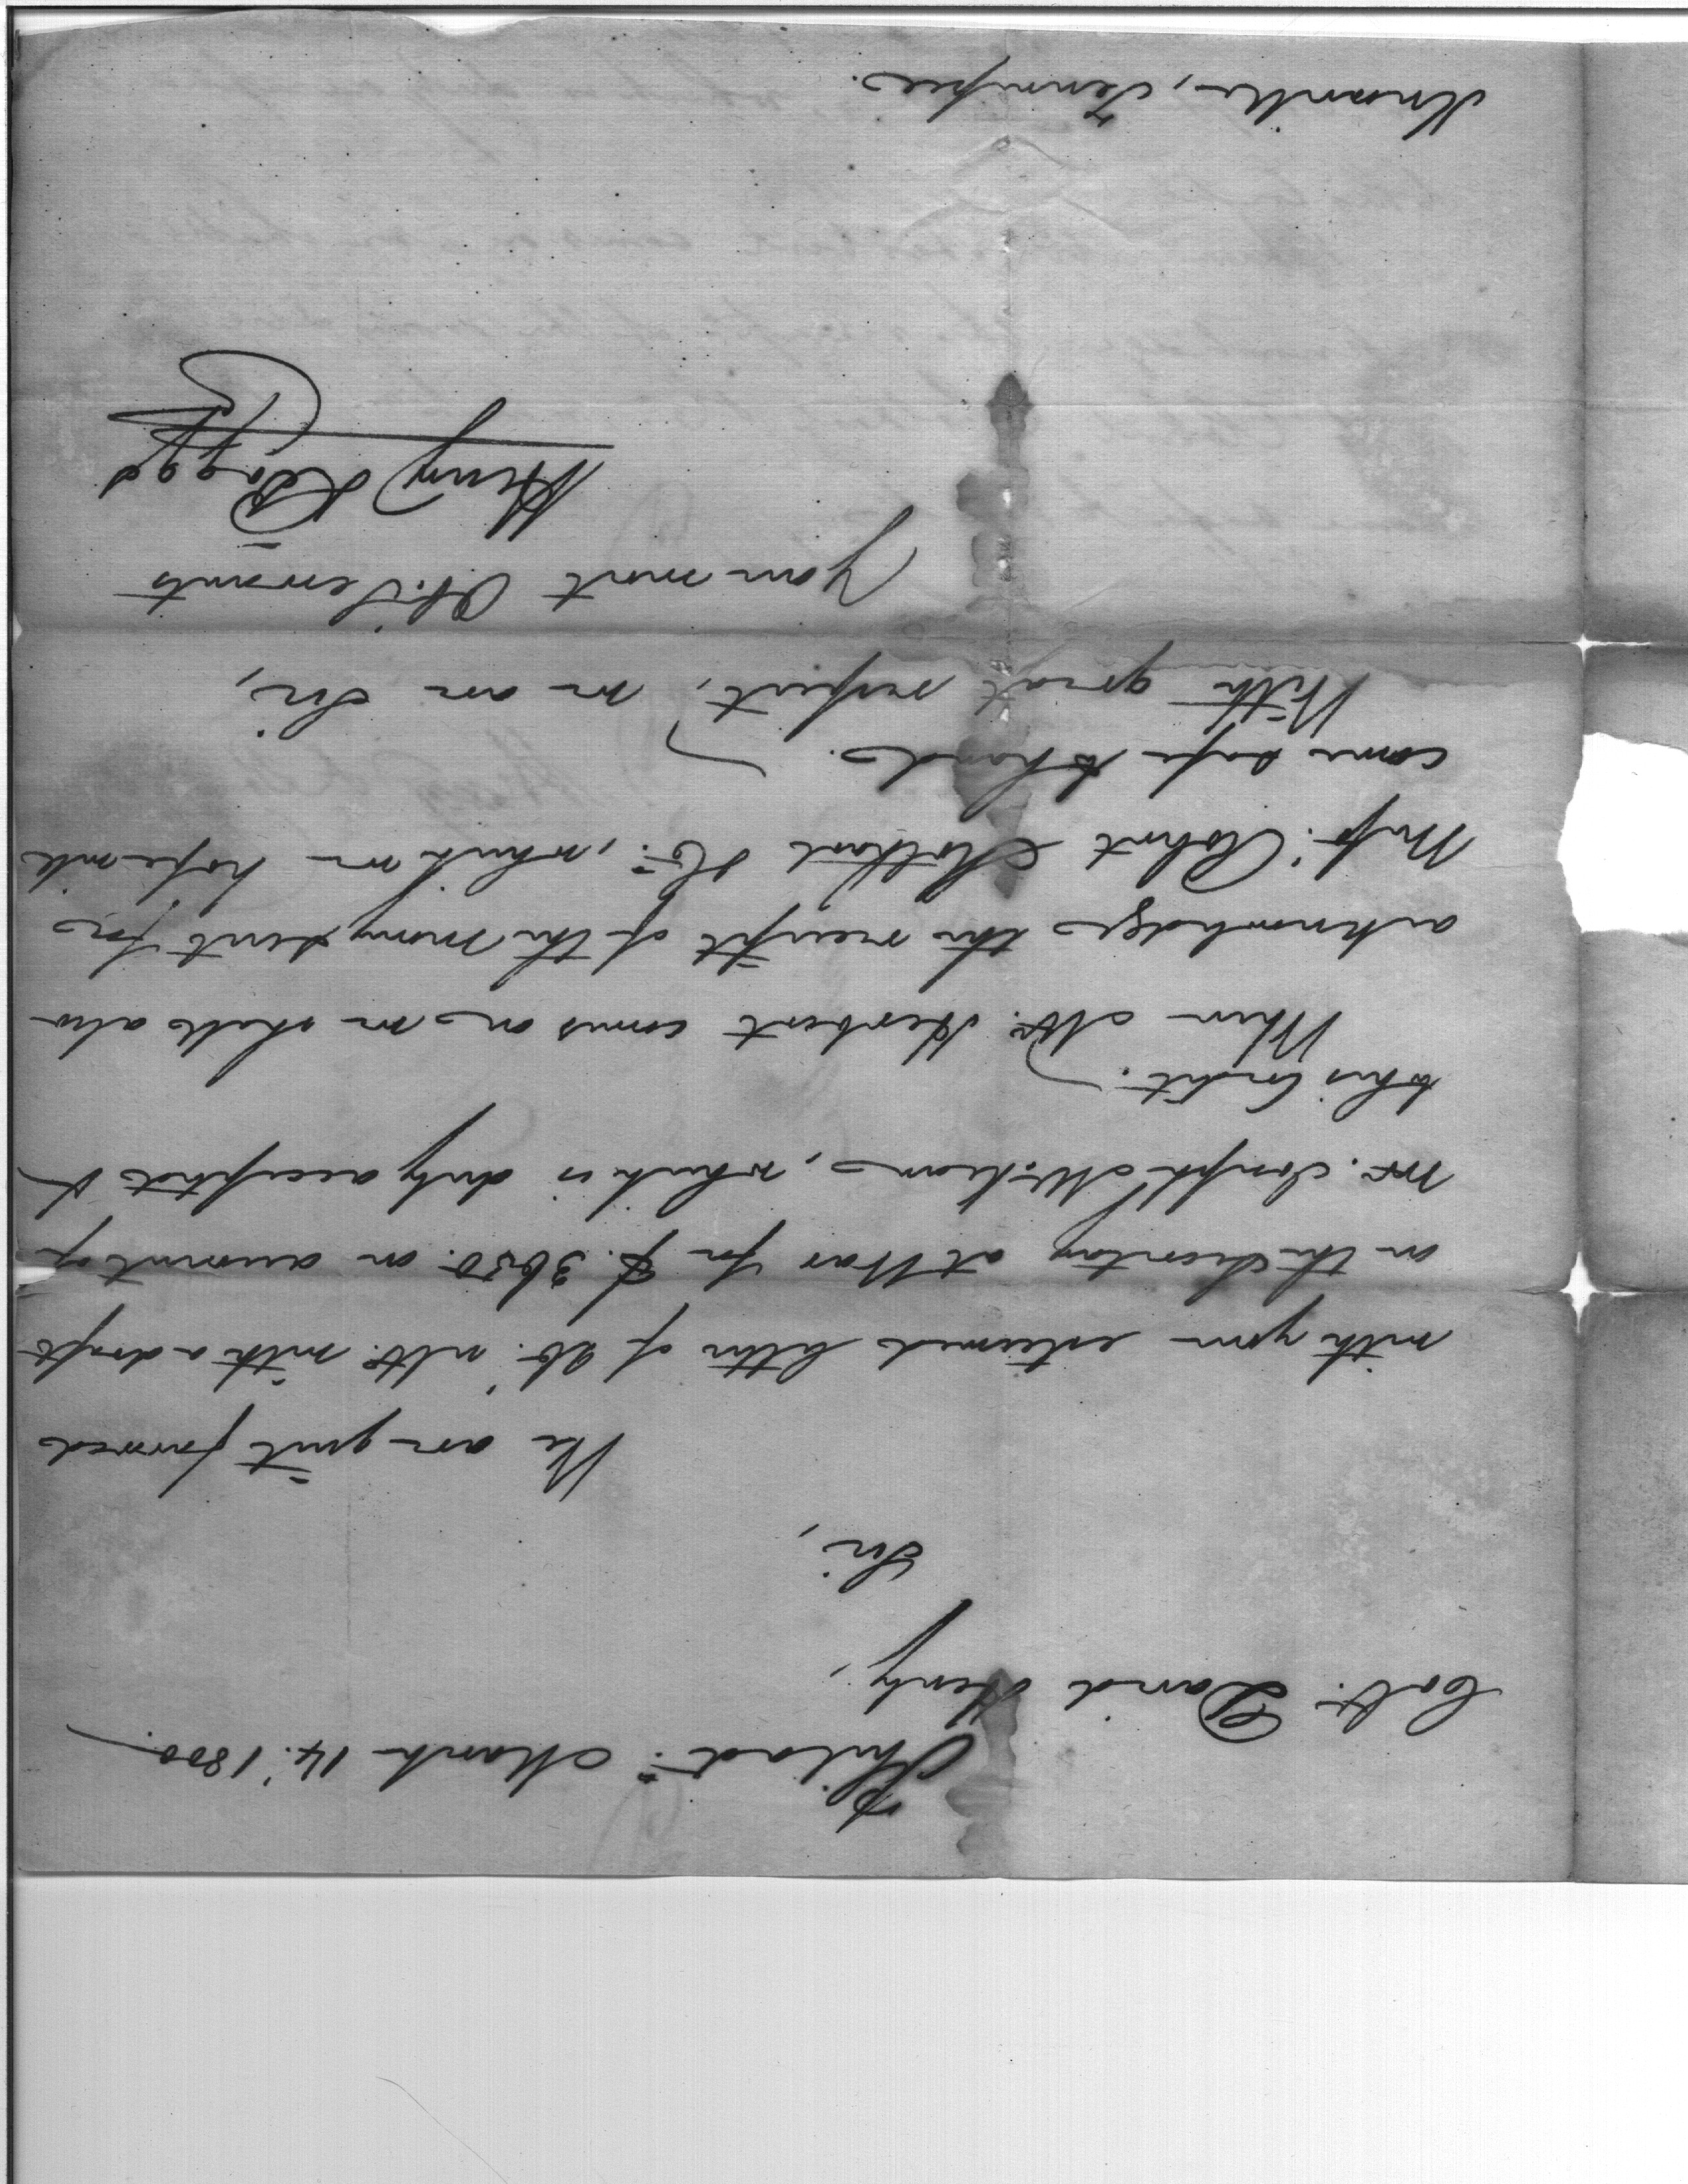 Philad.ª March 14.' 1800.
Col.º David Henly,
Sir,
We are just favored
with your esteemed letter of 26.' ulto. with a draft
on the Secretary at War for $. 3650. on account of
Mr. Joseph which is duly accepted &
to his Credit.
When Mr. Herbert comes on we shall also
acknowledge the receipt of the money sent for
Messrs. Robert & Co., which we hope will
come safe to hand.
With great respect, we are Sir,
Your most Ob.' Servants
Henry
Knoxville, Tennessee.